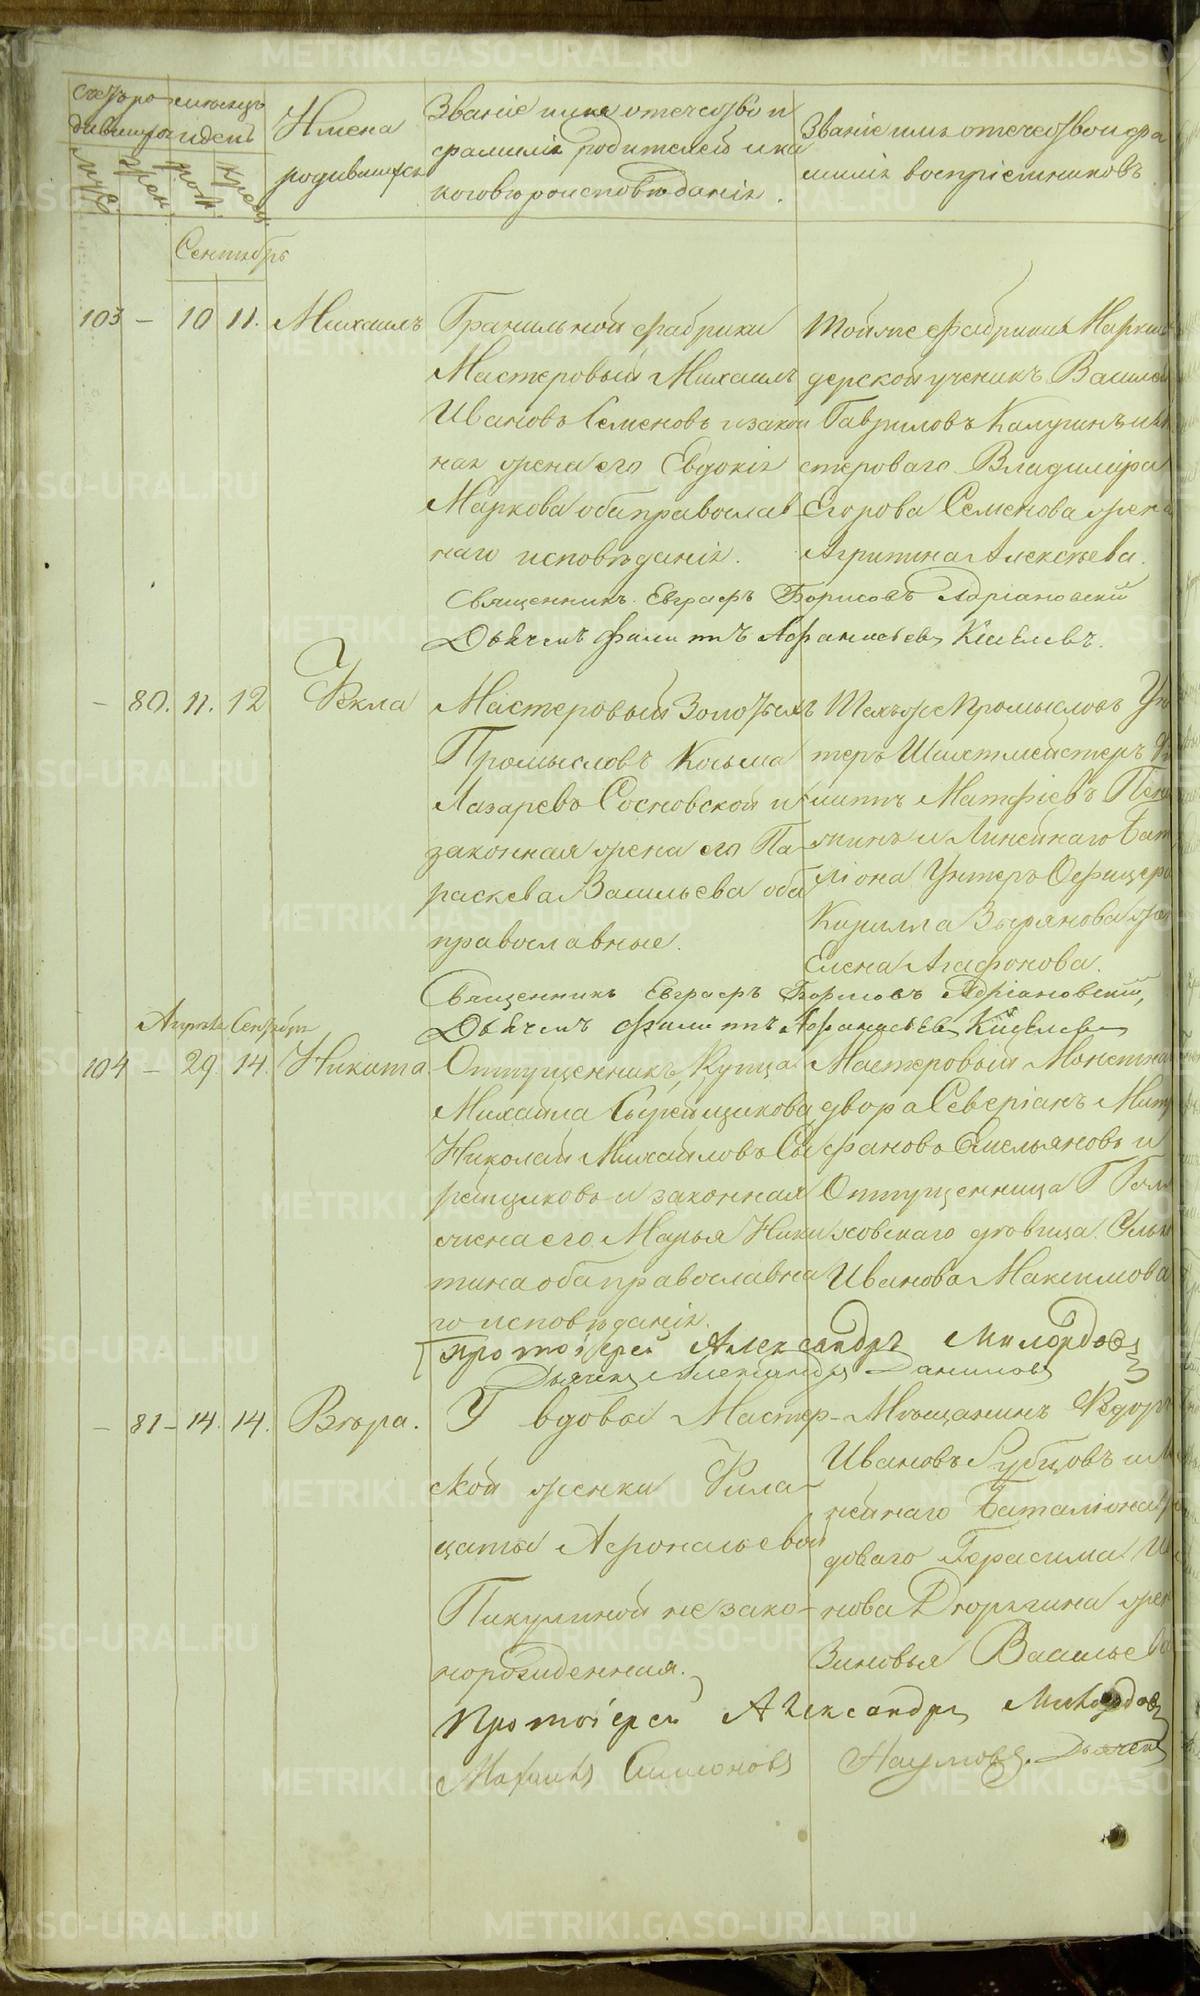 Счетъ ро- мѣсяцъ
дившихся и день
муж. жен. рожд. крещ.
Имена
родившихся
Званіе имя отечество и
фамилія родителей и ка
кого вѣроисповѣданія.
Званіе имя отечество и фа
милія воспріемниковъ
Сентябрь
103 — 10 11. Михаилъ
Гранильной фабрики
Мастеровый Михаилъ
Ивановъ Семеновъ и закон
ная жена его Евдокія
Маркова оба православ
наго исповѣданія.
Тойже фабрики
ученикъ Василей
Гавриловъ Калугинъ и ма
стероваго Владиміра
Егорова Семенова жена
Агрипина Алексѣева.
Священникъ Евграфъ Борисовъ Адріановскій
Дьячекъ Филиппъ Афанасьевъ Киселевъ.
— 80. 11. 12 Ѳекла
Мастеровый Золотыхъ
Промысловъ Косьма
Лазаревъ Сосновской и
законная жена его Па-
раскева Васильева оба
православные.
Техъ же Промысловъ Ун
теръ Шихтмейстеръ Фи
липпъ Матфіевъ
и Линейнаго Бата
ліона Унтеръ Офицера
Кирилла Зырянова жена
Елена Агафонова.
Священникъ Евграфъ Борисовъ Адріановскій,
Дьячекъ Филиппъ Афанасьевъ Киселевъ
Августа Сентябрь
104 — 29. 14. Никита
Отпущенникъ Купца
Михаила Сырейщикова
Николай Михайловъ Сы
рейщиковъ и законная
жена его Марья Ники
тина оба православна
го исповѣданія.
Мастеровый Монетна
двора Северіанъ Мит
рфановъ Емельяновъ и
Отпущенница Г
ховскаго девица Улья
Иванова Максимова
Протоіерей Александръ Милордовъ
Дьячекъ Александръ Даниловъ
— 81 — 14. 14. Вѣра.
У вдовы Мастер-
ской женки Фила-
цаты Афонасьевой
Пикулиной незако-
норожденная.
Мѣщанинъ Ѳедоръ
Ивановъ Рубцовъ и Ли
нейнаго Баталіона ря
доваго Герасима И
нова Дюрягина жен
Зиновья Васильева
Протоіерей Александръ Милордовъ
Симоновъ Наумовъ. Дьячекъ